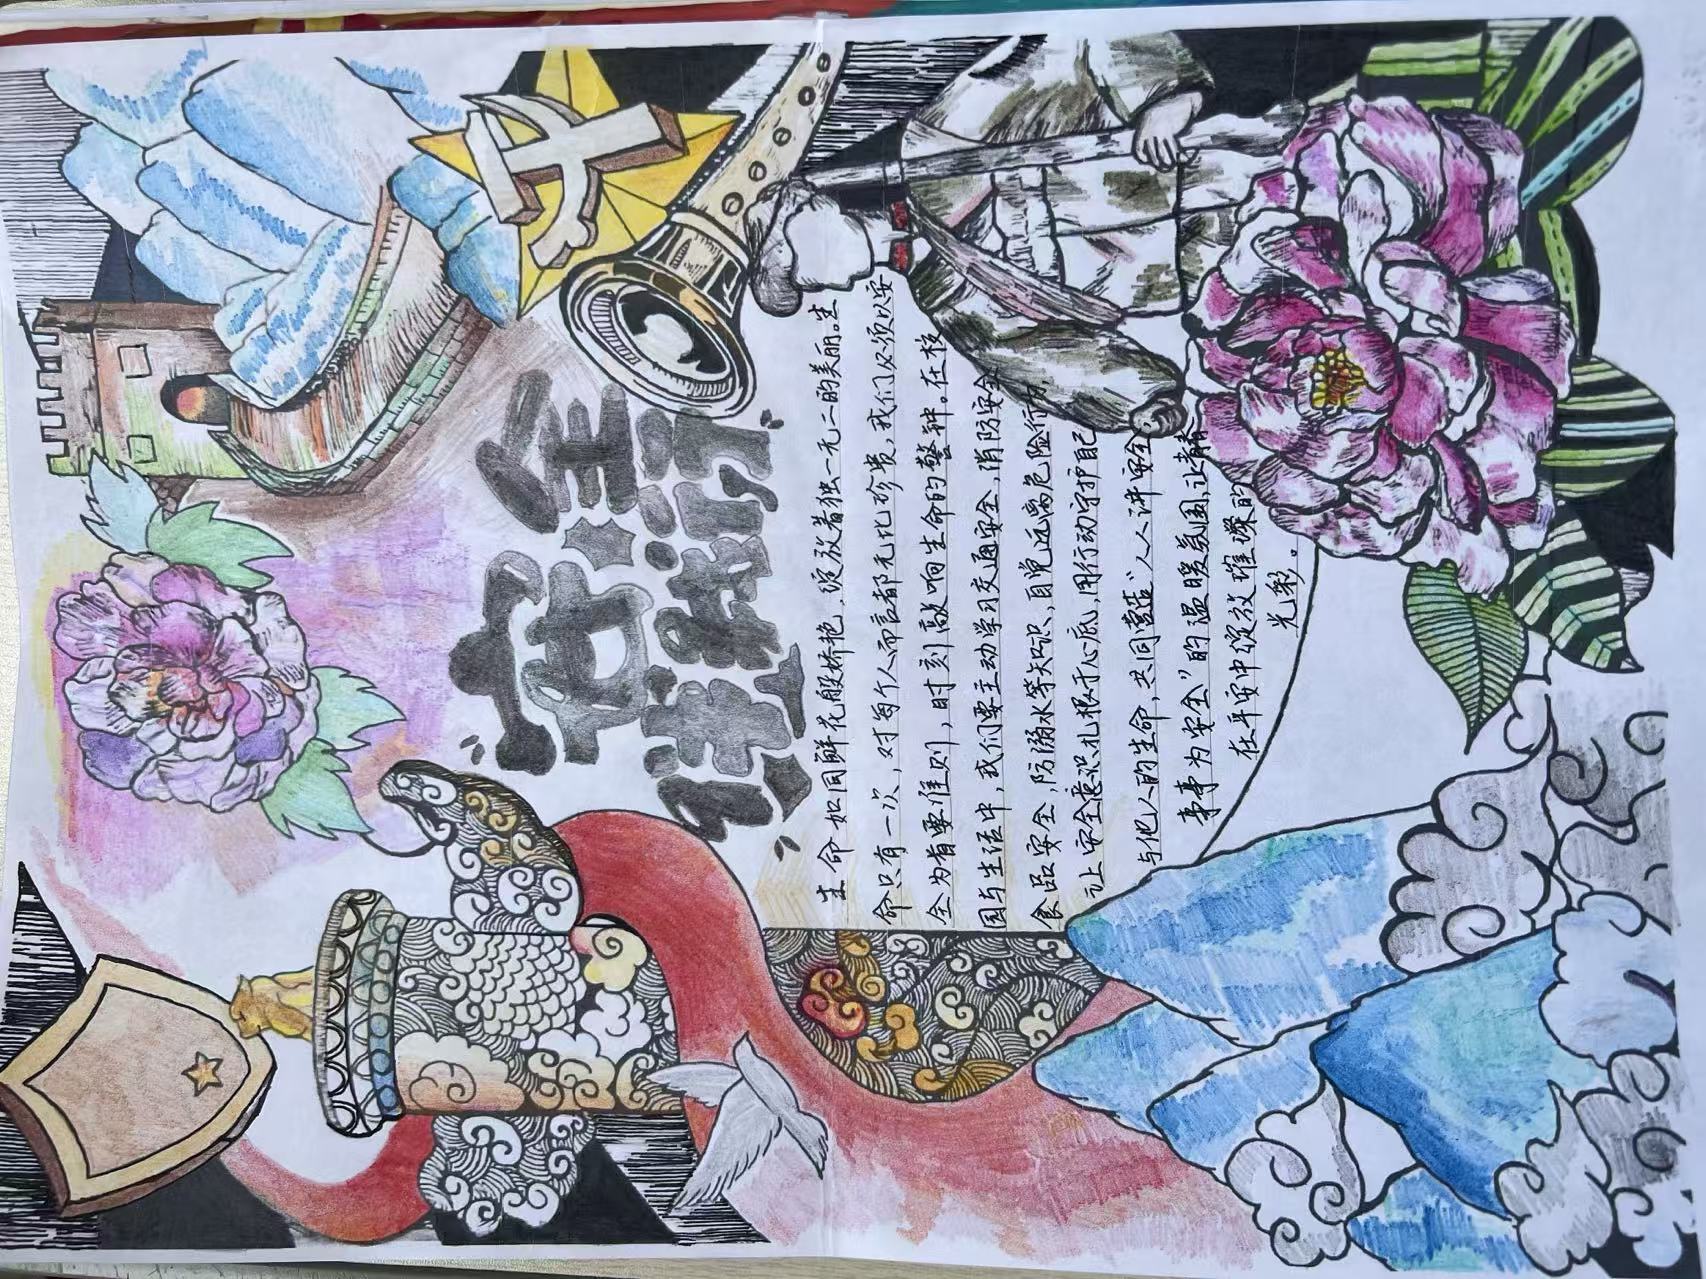 安全
生命如同鲜花般娇艳，绽放着独一无二的美丽。生
命只有一次，对每个人而言都无比珍贵，我们必须以安
全为首要准则，时刻敲响生命的警钟。在校
园与生活中，我们要主动学习交通安全，消防安全
食品安全，防溺水等知识，自觉远离危险行为，
让安全意识扎根于心底，用行动守护自己
与他人的生命，共同营造“人人讲安全
事事为安全”的温暖氛围，让青
在平安中绽放璀璨的
光彩。